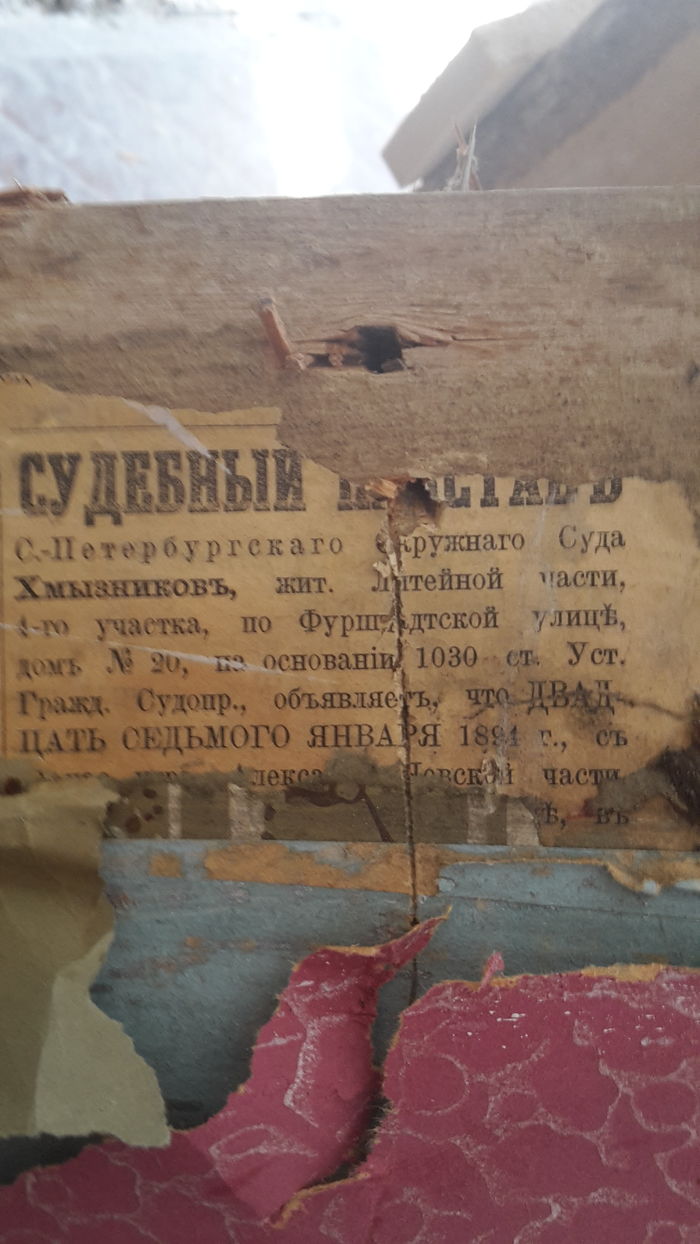 СУДЕБНЫЙ ПРИСТАВЪ
С.-Петербургскаго Окружнаго Суда
Хмызниковъ, жит. Литейной части,
4-го участка, по Фурштадтской улицѣ,
домъ № 20, на основаніи 1030 ст. Уст.
Гражд. Судопр., объявляетъ, что ДВАД-
ЦАТЬ СЕДЬМОГО ЯНВАРЯ 1894 г., съ
части,
въ